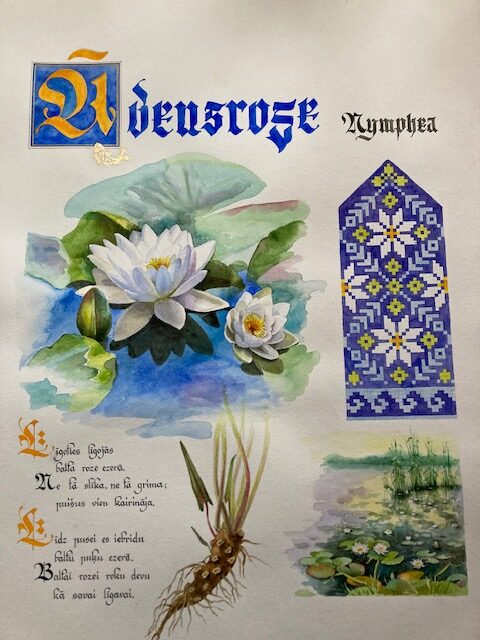 Ūdensroze
Nymphea
Līgoties līgojās
balta roze ezerā.
Ne tā slīka, ne tā grima;
puišus vien kairināja.
Līdz pusei es iebridu
baltu puķu ezerā.
Baltai rozei roku devu
kā savai līgavai.